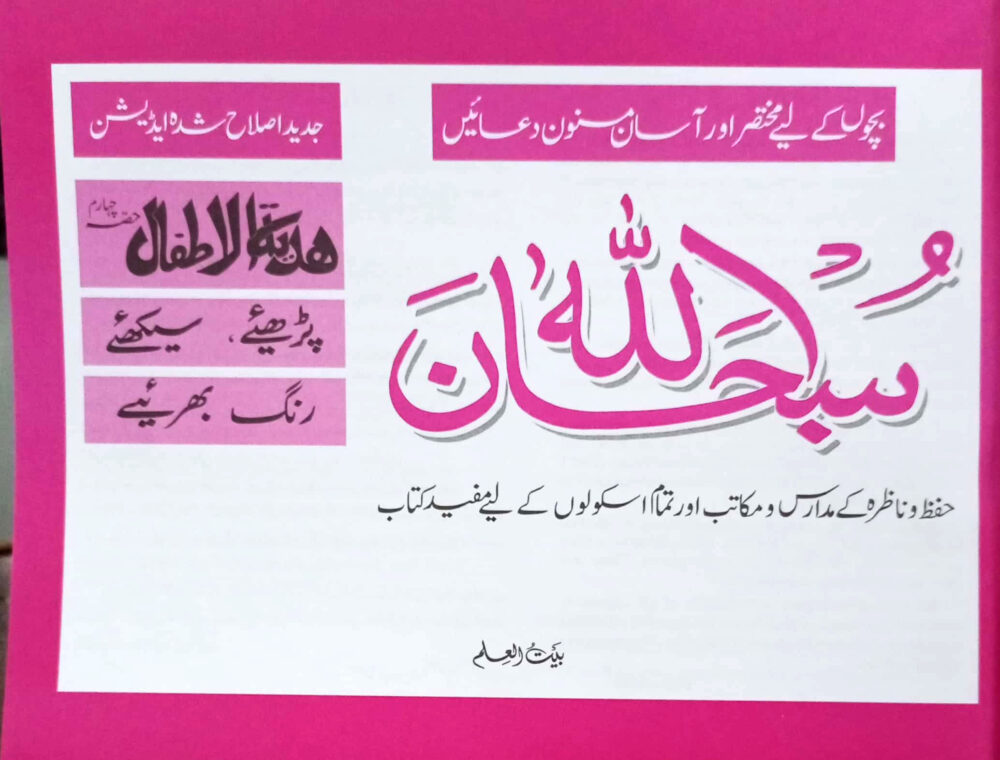 بچوں کے لیے مختصر اور آسان مسنون دعائیں
جدید اصلاح شدہ ایڈیشن
سُبْحَانَ اللّٰه
هدية الاطفال
حصّہ چہارم
پڑھیئے، سیکھئے
رنگ بھرئیے
حفظ و ناظرہ کے مدارس و مکاتب اور تمام اسکولوں کے لیے مفید کتاب
بَیتُ العِلم